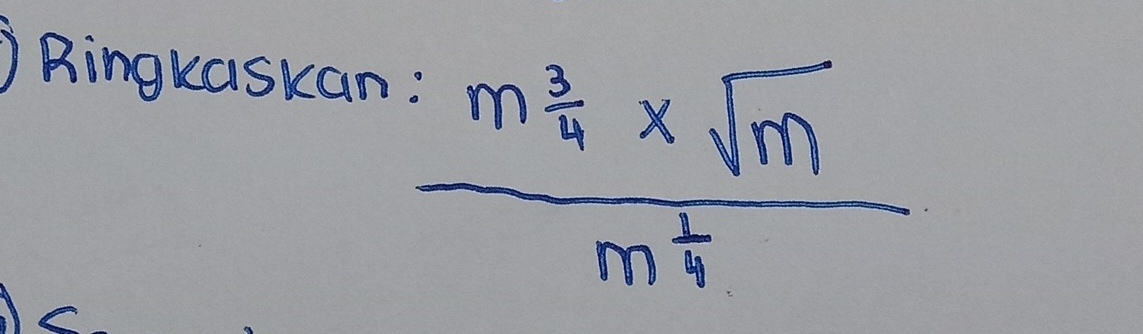 ) Ringkaskan: m^(3/4) × √m
m^(1/4)
)